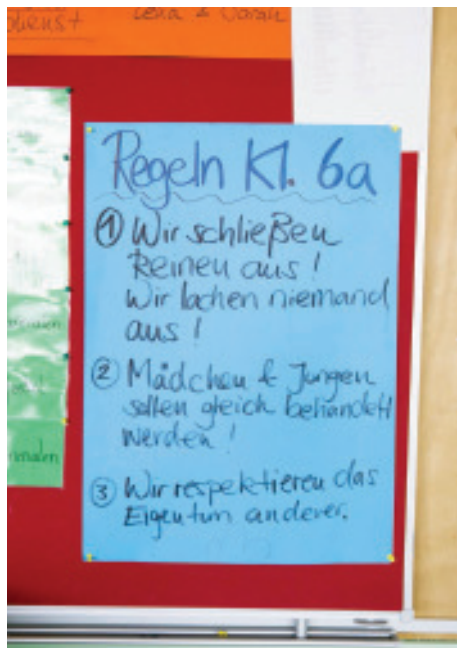 Lena & Sarah
Regeln Kl. 6a
① Wir schließen
keinen aus!
Wir lachen niemand
aus!
② Mädchen & Jungen
sollen gleich behandelt
werden!
③ Wir respektieren das
Eigentum anderer.